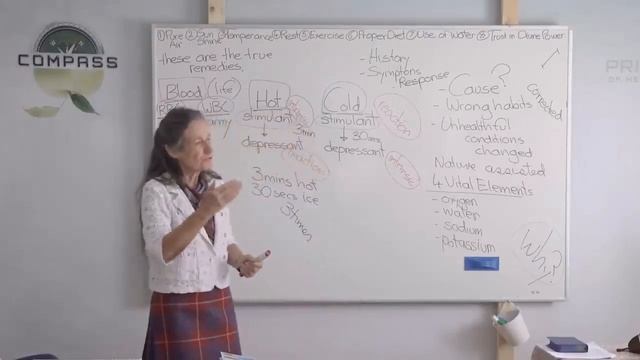 COMPASS
① Pure Air ② Sun Shine ③ Temperance ④ Rest ⑤ Exercise ⑥ Proper Diet ⑦ Use of Water ⑧ Trust in Divine Power
these are the true
remedies.
Blood life
WBC
army
Hot
stimulant
3min
depressant
3mins hot
30secs Ice
3 times
Cold
stimulant
30secs
depressant
reaction
- History
- Symptoms
Response
- Cause?
- Wrong habits
corrected
- Unhealthful
conditions
changed
Nature assisted
4 Vital Elements
- oxygen
- water
- sodium
- potassium
Why?
PRI
OF HE